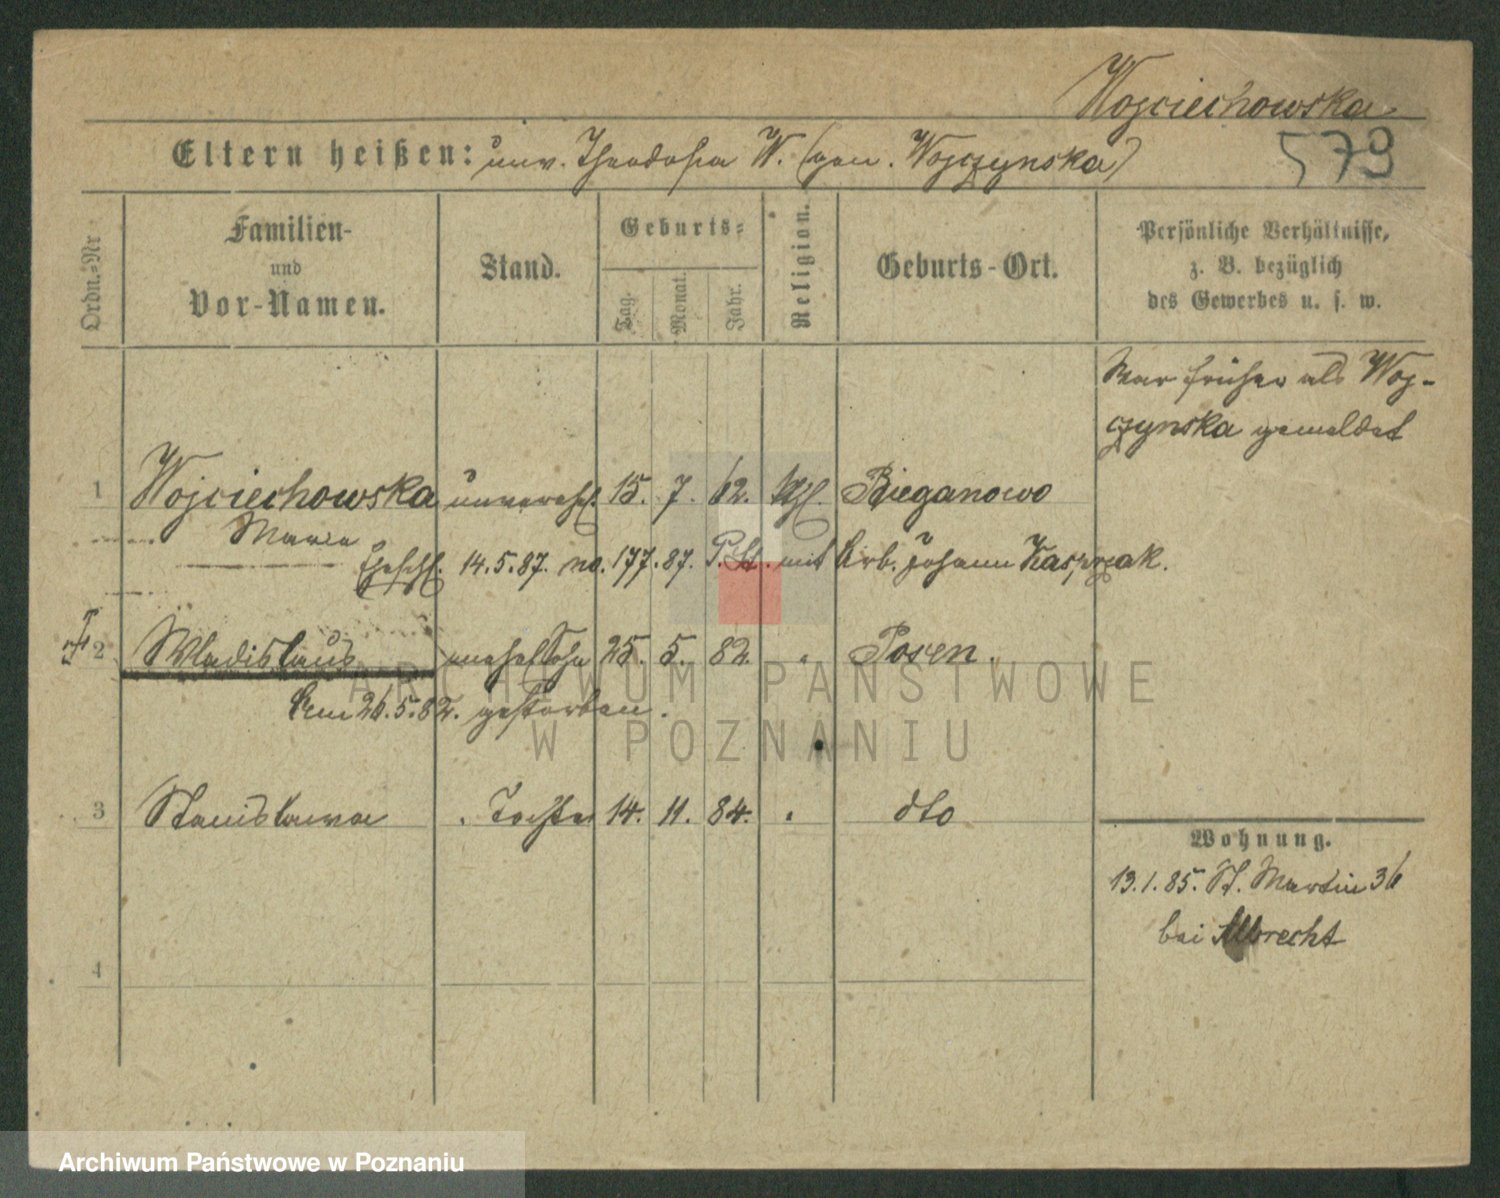 Wojciechowska
Eltern heißen: unv. Theodosia W. (gen. Wojczynska)
579
Ordn.-Nr
Familien-
und
Vor-Namen.
Stand.
Geburts-
Tag.
Monat.
Jahr.
Religion.
Geburts-Ort.
Persönliche Verhältnisse,
z. B. bezüglich
des Gewerbes u. s. w.
War früher als Woj-
czynska gemeldet
1 Wojciechowska unverehl. 15. 7. 62. kath. Bieganowo
Maria
Ehschl. 14.5.87. no. 177.87. P. St. mit Arb. Johann Kasprzak.
2 Wladislaus unehel Sohn 25. 5. 82. " Posen.
Am 26.5.82. gestorben.
3 Stanislawa " Tochter 14. 11. 84. " dto
Wohnung.
13.1.85. St. Martin 36
bei Albrecht
4
ARCHIWUM PAŃSTWOWE
W POZNANIU
Archiwum Państwowe w Poznaniu